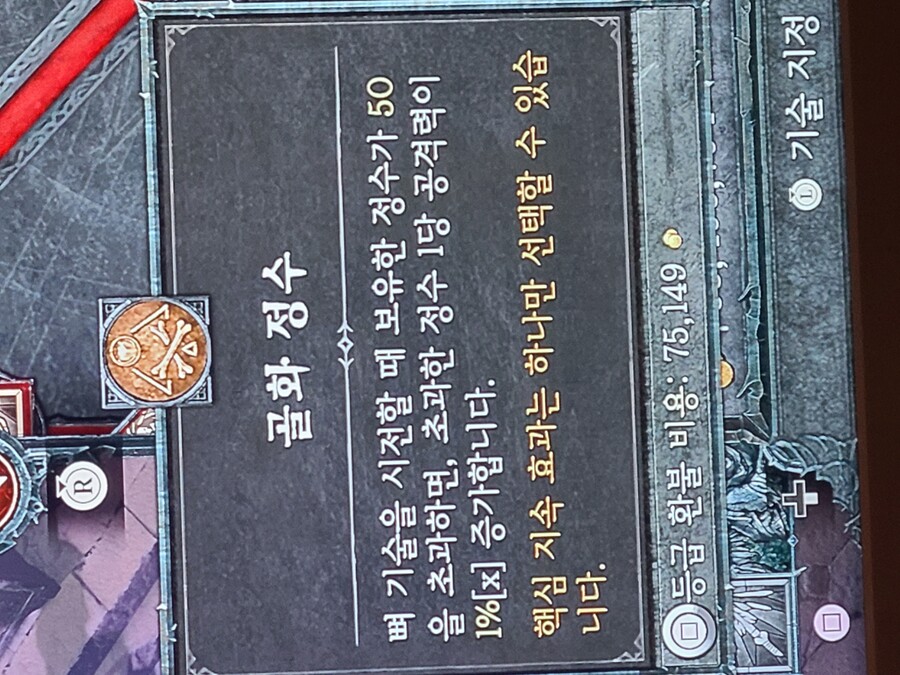 골화 정수
뼈 기술을 시전할 때 보유한 정수가 50
을 초과하면, 초과한 정수 1당 공격력이
1%[x] 증가합니다.
핵심 지속 효과는 하나만 선택할 수 있습
니다.
등급 환불 비용: 75,149
L 기술 지정
R